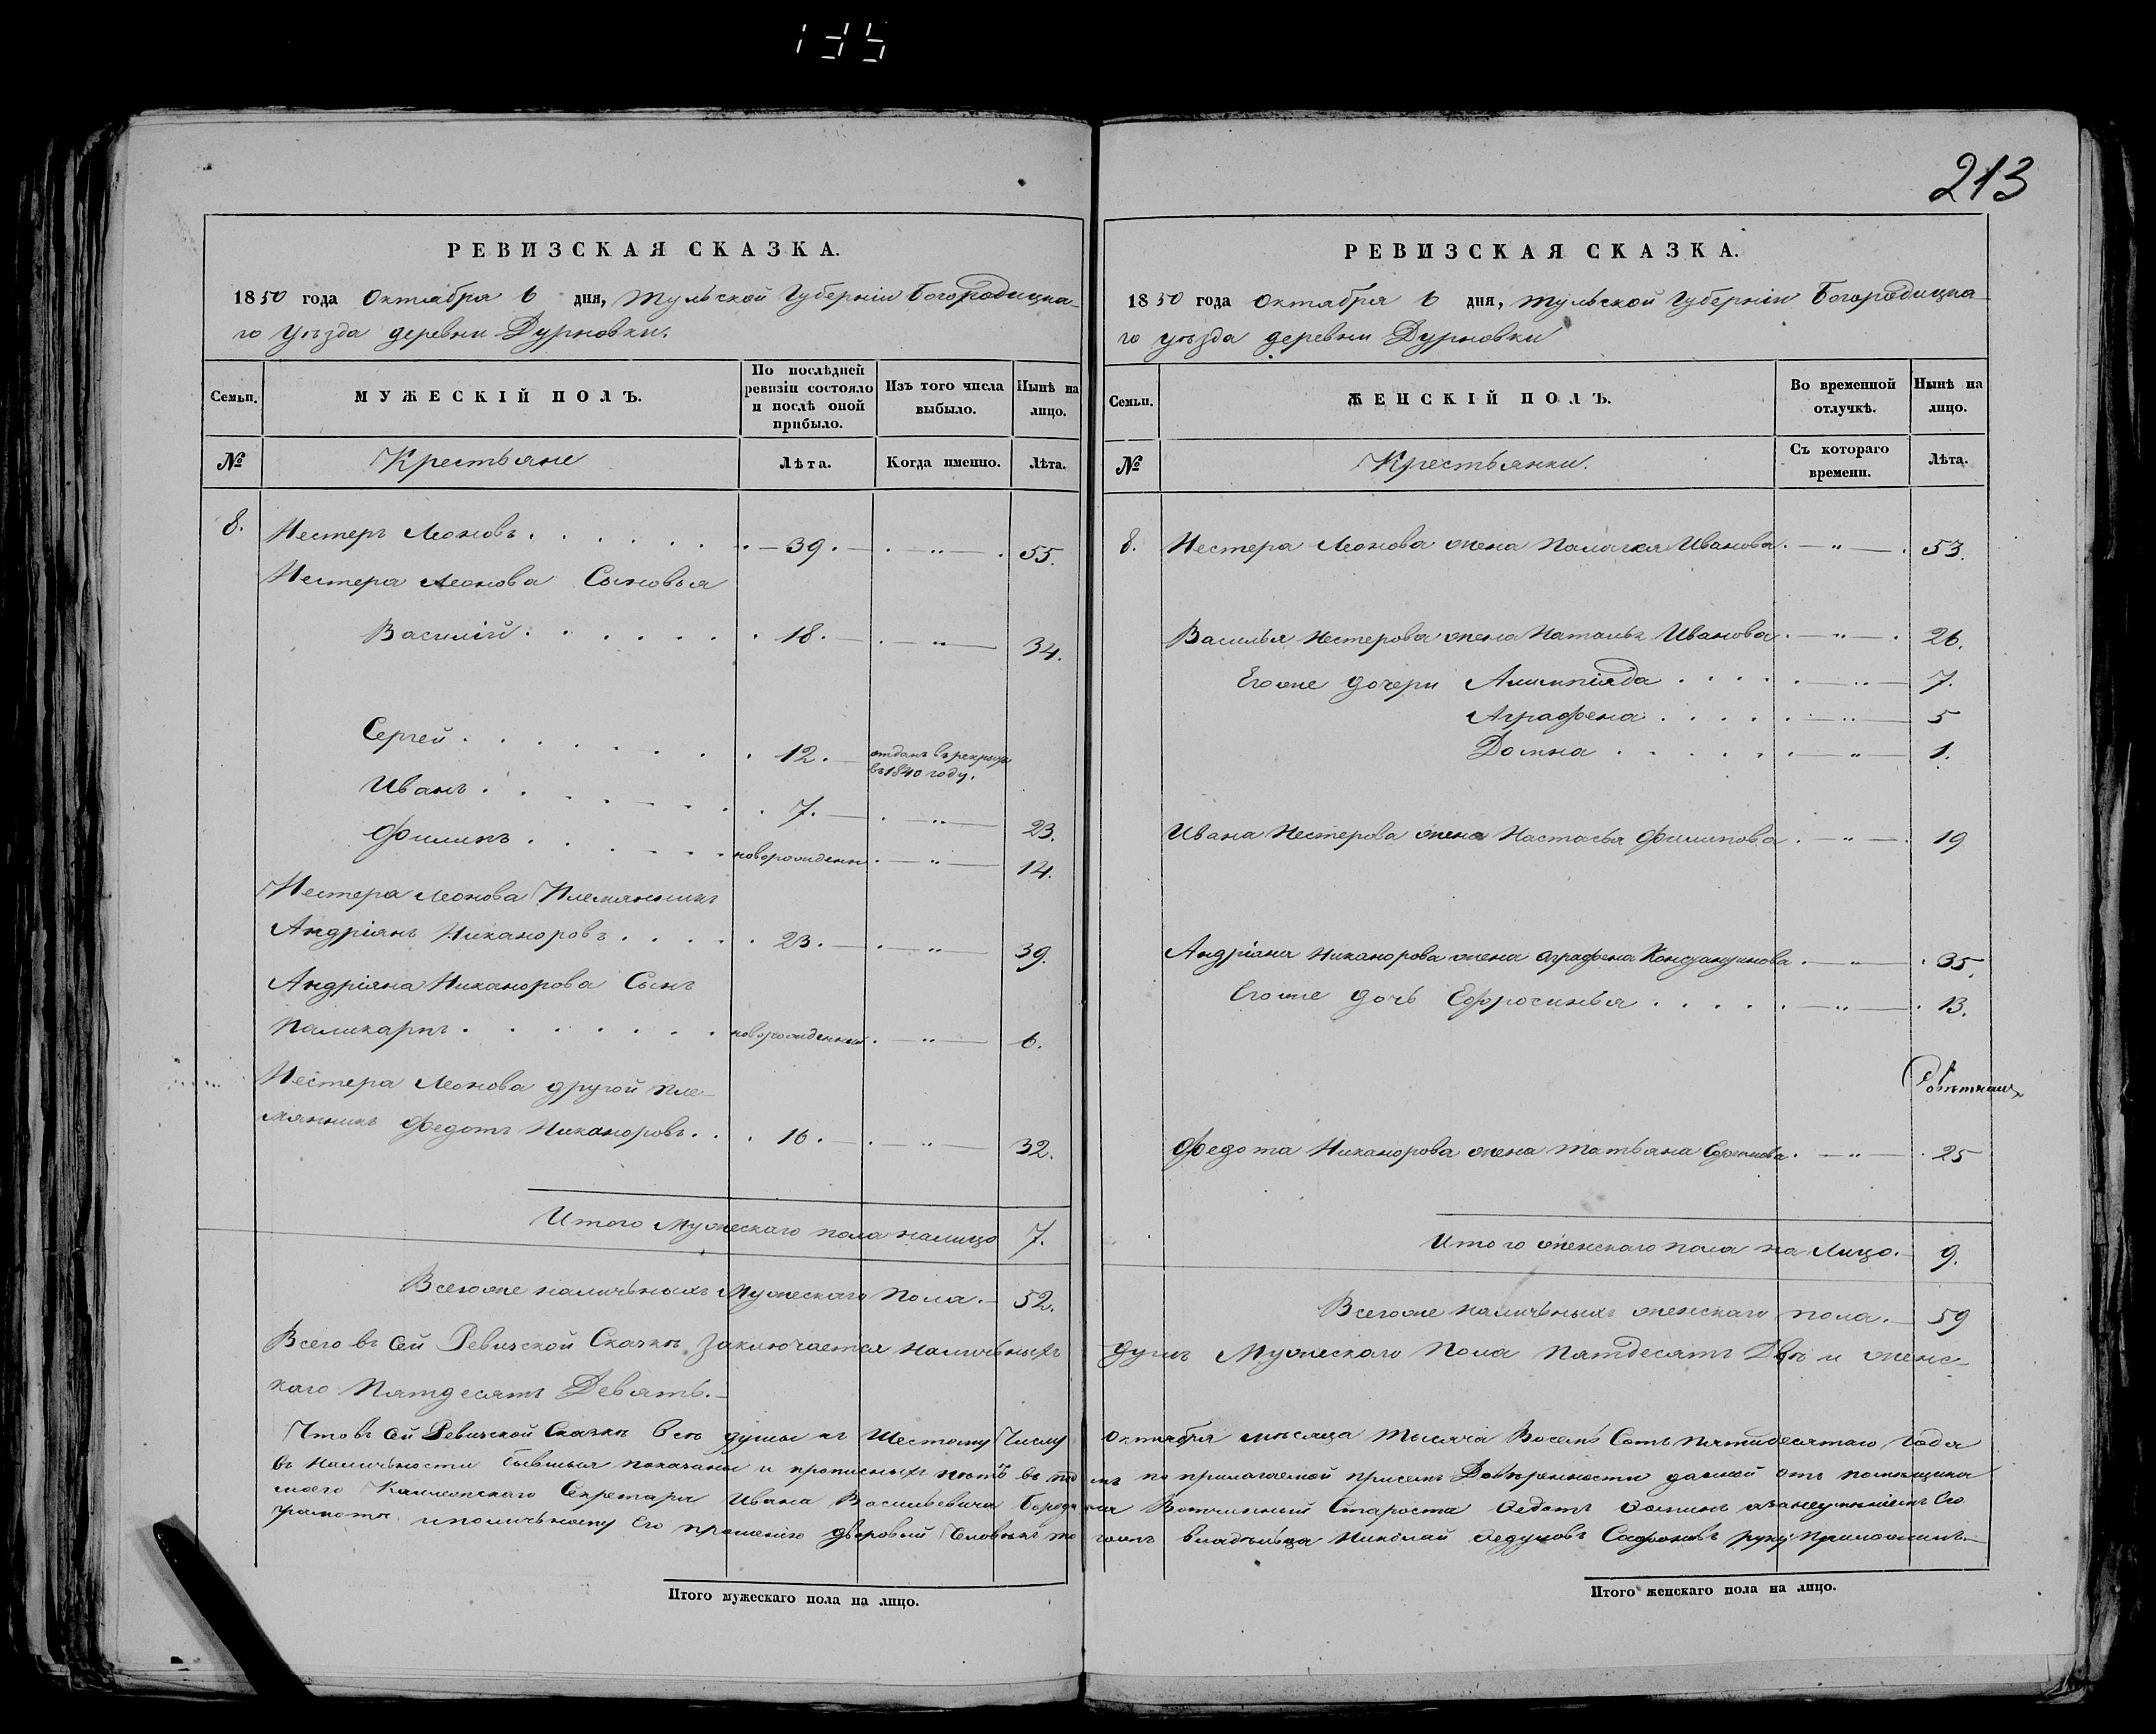 213
РЕВИЗСКАЯ СКАЗКА.
1850 года Октября 6 дня, Тульской Губерніи Богородицка-
го уѣзда деревни Дурновки.
Семьи.
МУЖЕСКІЙ ПОЛЪ.
По послѣдней ревизіи состояло и послѣ оной прибыло.
Изъ того числа выбыло.
Нынѣ на лицо.
№ Крестьяне Лѣта. Когда именно. Лѣта.
8. Нестеръ Леоновъ . . . . . . . 39. — " — 55.
Нестера Леонова Сыновья
Василій . . . . . . 18. — " — 34.
Сергей . . . . . . . 12. — отданъ въ рекруты
въ 1840 году.
Иванъ . . . . . . . 7. — " — 23.
Филипъ . . . . . . новорожденн. — " — 14.
Нестера Леонова Племянникъ
Андріянъ Никаноровъ . . . . . 23. — " — 39.
Андріяна Никанорова Сынъ
Паликарпъ . . . . . . . новорожденный. — " — 6.
Нестера Леонова другой пле-
мянникъ Федотъ Никаноровъ . . . 16. — " — 32.
Итого Мужескаго пола налицо 7.
Всегоже наличьныхъ Мужескаго Пола. — 52.
РЕВИЗСКАЯ СКАЗКА.
1850 года Октября 6 дня, Тульской Губерніи Богородицка-
го уѣзда деревни Дурновки
Семьи.
ЖЕНСКІЙ ПОЛЪ.
Во временной отлучкѣ.
Нынѣ на лицо.
№ Крестьянки. Съ котораго времени. Лѣта.
8. Нестера Леонова жена Палагея Иванова. — " — 53.
Василья Нестерова жена Наталья Иванова. — " — 26.
Егоже дочери Алимпіяда . . . . . — " — 7.
Аграфена . . . . . — " — 5
Домна . . . . . . — " — 1.
Ивана Нестерова жена Настасья Филипова . — " — 19
Андріяна Никанорова жена Аграфена Констянтинова . — " — 35.
Егоже дочь Ефросинья . . . . . — " — 13.
Федота Никанорова жена Татьяна Ефимова. — " — 25
Итого женскаго пола на Лицо. — 9.
Всегоже наличьныхъ женскаго пола. — 59
Всего въ сей Ревизской Сказкѣ Заключается наличьныхъ душъ Мужескаго Пола Пятдесятъ Двѣ и женс-
каго Пятдесятъ Девять. —
Что въ сей Ревизской Сказкѣ всѣ души къ Шестому Числу октября мѣсяца Тысяча Восемь Сотъ пятидесятаго Года
въ наличьности бывшыя показаны и прописныхъ нѣтъ въ томъ по прилагаемой присемъ Довѣренности данной отъ помѣщика
моего Секретаря Ивана Васильевича Вотчинный Староста Федотъ Его
грамотѣ иполичьному Его прошенію дворовый Человѣкъ тогожъ владѣльца Николай Сафоновъ руку Приложилъ. —
Итого мужескаго пола на лицо.
Итого женскаго пола на лицо.